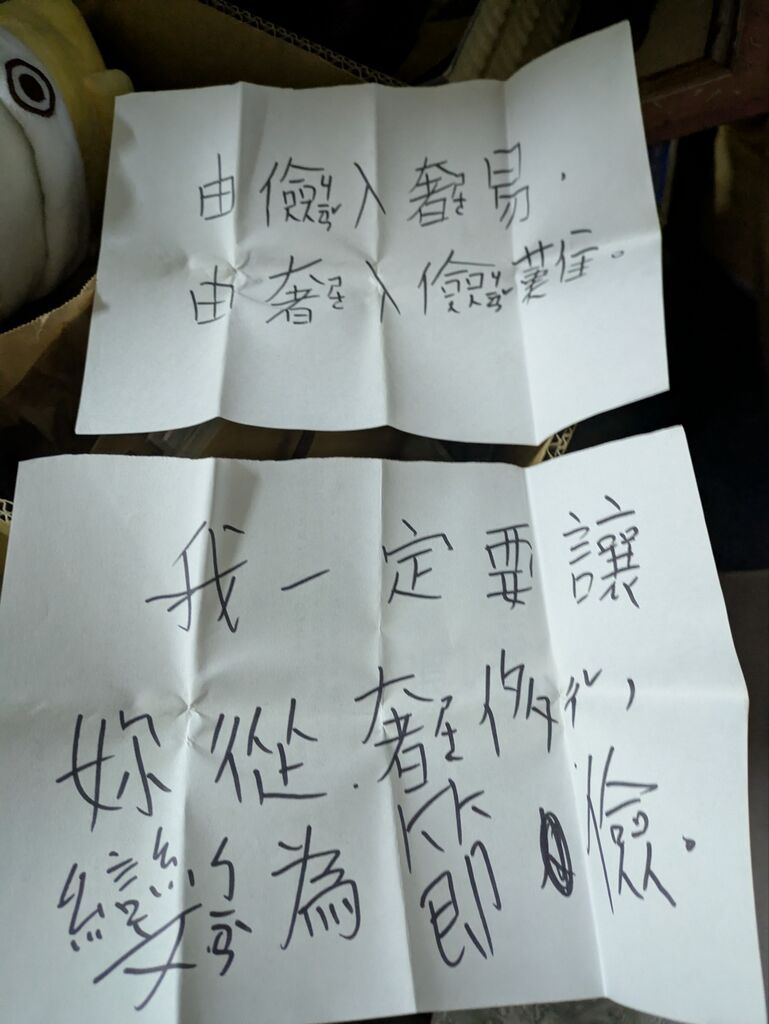 由儉ㄐㄧㄢˇ入奢ㄕㄜ易，
由奢ㄕㄜ入儉ㄐㄧㄢˇ難。
我一定要讓
妳從奢ㄕㄜ侈ㄔˇ，
變成為節儉。